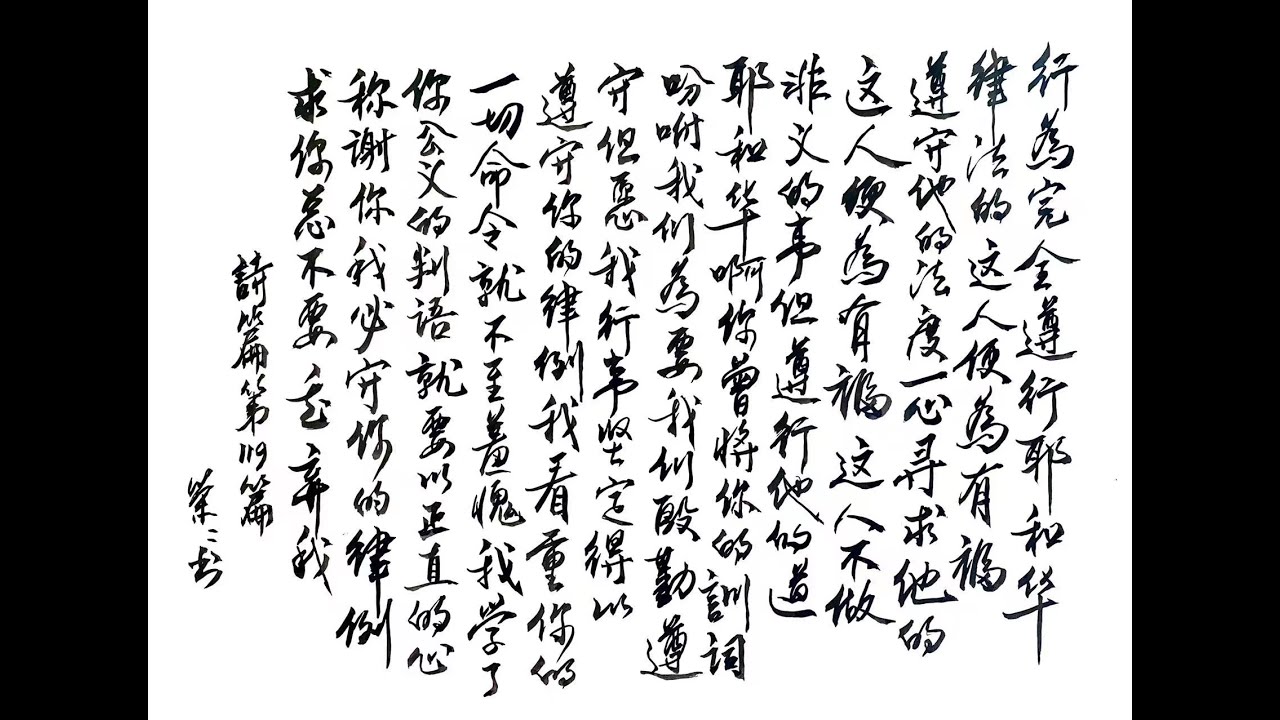 行為完全遵行耶和华
律法的这人便為有福
遵守他的法度一心寻求他的
这人便為有福这人不做
非义的事但遵行他的道
耶和华啊你曾将你的訓词
吩咐我们為要我们殷勤遵
守但愿我行事坚定得以
遵守你的律例我看重你的
一切命令就不至羞愧我学了
你公义的判语就要以正直的心
称谢你我必守你的律例
求你总不要丢弃我
詩篇第119篇
荣々书